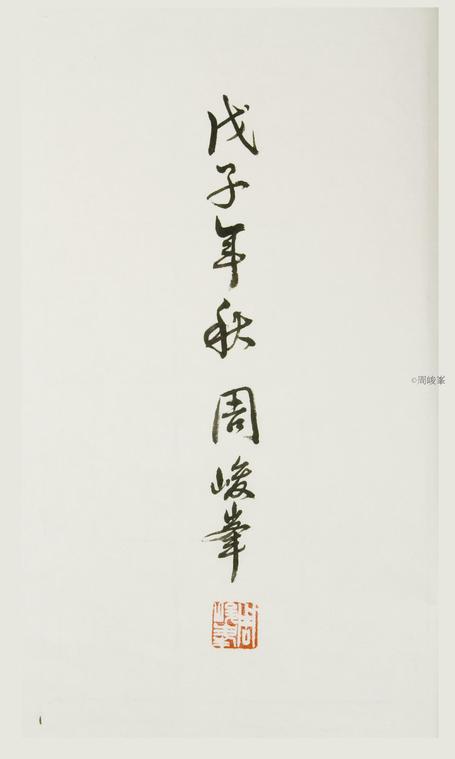 戊子年秋 周峻峯
周峻峯
©周峻峯